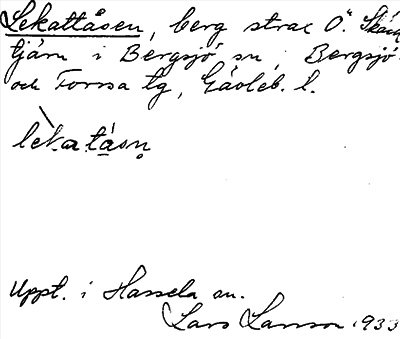 Lekattåsen, berg strax Ö. Skärn
tjärn i Bergsjö sn, Bergsjö
och Forssa tg, Gävleb. l.
lekatåsn
Uppt. i Hassela sn.
Lars Larsson 1933